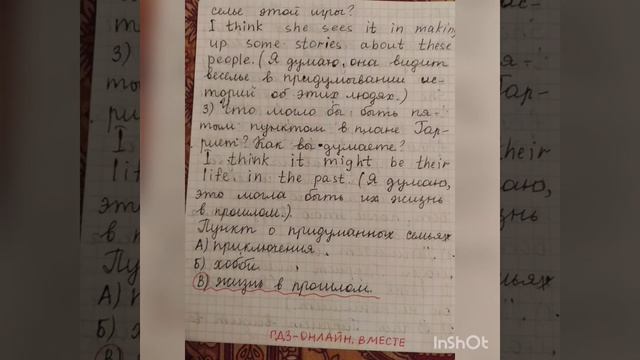 селье этой игры?
I think she sees it in making
up some stories about these
people. (Я думаю, она видит
веселье в придумывании ис-
торий об этих людях.)
3) Что могло бы быть пя-
тым пунктом в плане Гар-
риет? Как вы думаете?
I think it might be their
life in the past. (Я думаю,
это могла быть их жизнь
в прошлом.).
Пункт о придуманных семьях
А) приключения.
Б) хобби.
В) жизнь в прошлом.
ГДЗ-ОНЛАЙН. ВМЕСТЕ
InShOt